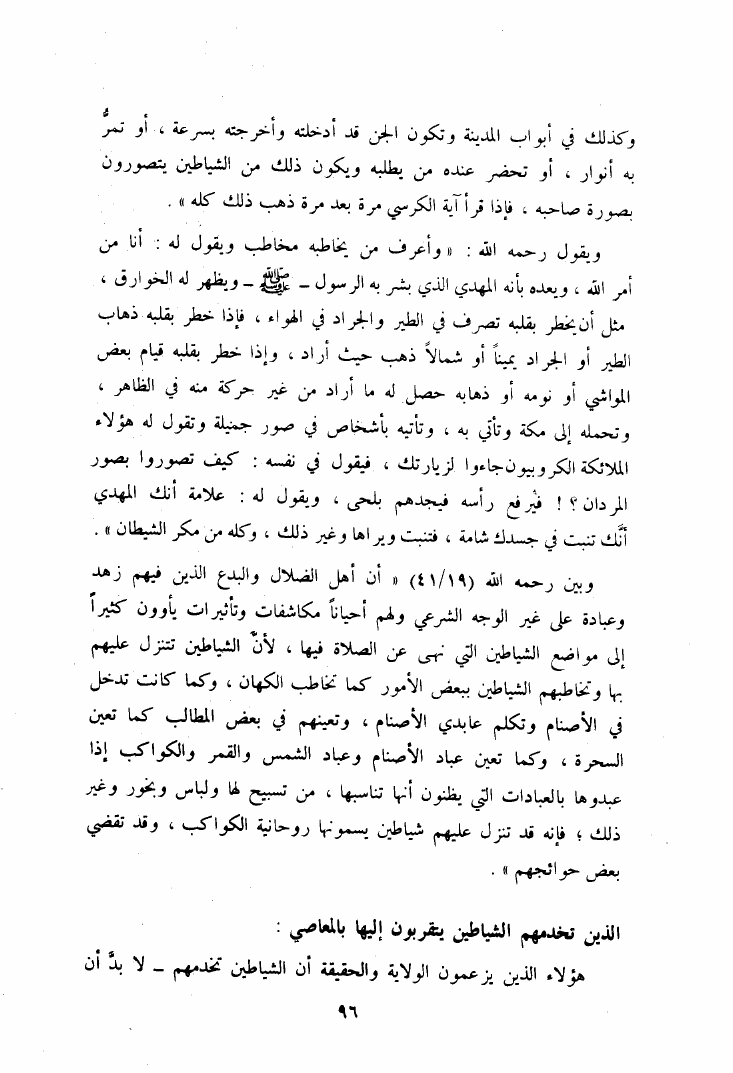 وكذلك في أبواب المدينة وتكون الجن قد أدخلته وأخرجته بسرعة ، أو تمرُّ
به أنوار ، أو تحضر عنده من يطلبه ويكون ذلك من الشياطين يتصورون
بصورة صاحبه ، فإذا قرأ آية الكرسي مرة بعد مرة ذهب ذلك كله » .
ويقول رحمه الله : « وأعرف من يخاطبه مخاطب ويقول له : أنا من
أمر الله ، ويعده بأنه المهدي الذي بشر به الرسول – ﷺ – ويظهر له الخوارق ،
مثل أن يخطر بقلبه تصرف في الطير والجراد في الهواء ، فإذا خطر بقلبه ذهاب
الطير أو الجراد يميناً أو شمالاً ذهب حيث أراد ، وإذا خطر بقلبه قيام بعض
المواشي أو نومه أو ذهابه حصل له ما أراد من غير حركة منه في الظاهر ،
وتحمله إلى مكة وتأتي به ، وتأتيه بأشخاص في صور جميلة وتقول له هؤلاء
الملائكة الكروبيون جاءوا لزيارتك ، فيقول في نفسه : كيف تصوروا بصور
المردان ؟ ! فيرفع رأسه فيجدهم بلحى ، ويقول له : علامة أنك المهدي
أنَّك تنبت في جسدك شامة ، فتنبت ويراها وغير ذلك ، وكله من مكر الشيطان » .
وبين رحمه الله (٤١/١٩) « أن أهل الضلال والبدع الذين فيهم زهد
وعبادة على غير الوجه الشرعي ولهم أحياناً مكاشفات وتأثيرات يأوون كثيراً
إلى مواضع الشياطين التي نهى عن الصلاة فيها ، لأنَّ الشياطين تتنزل عليهم
بها وتخاطبهم الشياطين ببعض الأمور كما تخاطب الكهان ، وكما كانت تدخل
في الأصنام وتكلم عابدي الأصنام ، وتعينهم في بعض المطالب كما تعين
السحرة ، وكما تعين عباد الأصنام وعباد الشمس والقمر والكواكب إذا
عبدوها بالعبادات التي يظنون أنها تناسبها ، من تسبيح لها ولباس وبخور وغير
ذلك ؛ فإنه قد تنزل عليهم شياطين يسمونها روحانية الكواكب ، وقد تقضي
بعض حوائجهم » .
الذين تخدمهم الشياطين يتقربون إليها بالمعاصي :
هؤلاء الذين يزعمون الولاية والحقيقة أن الشياطين تخدمهم – لا بدَّ أن
٩٦